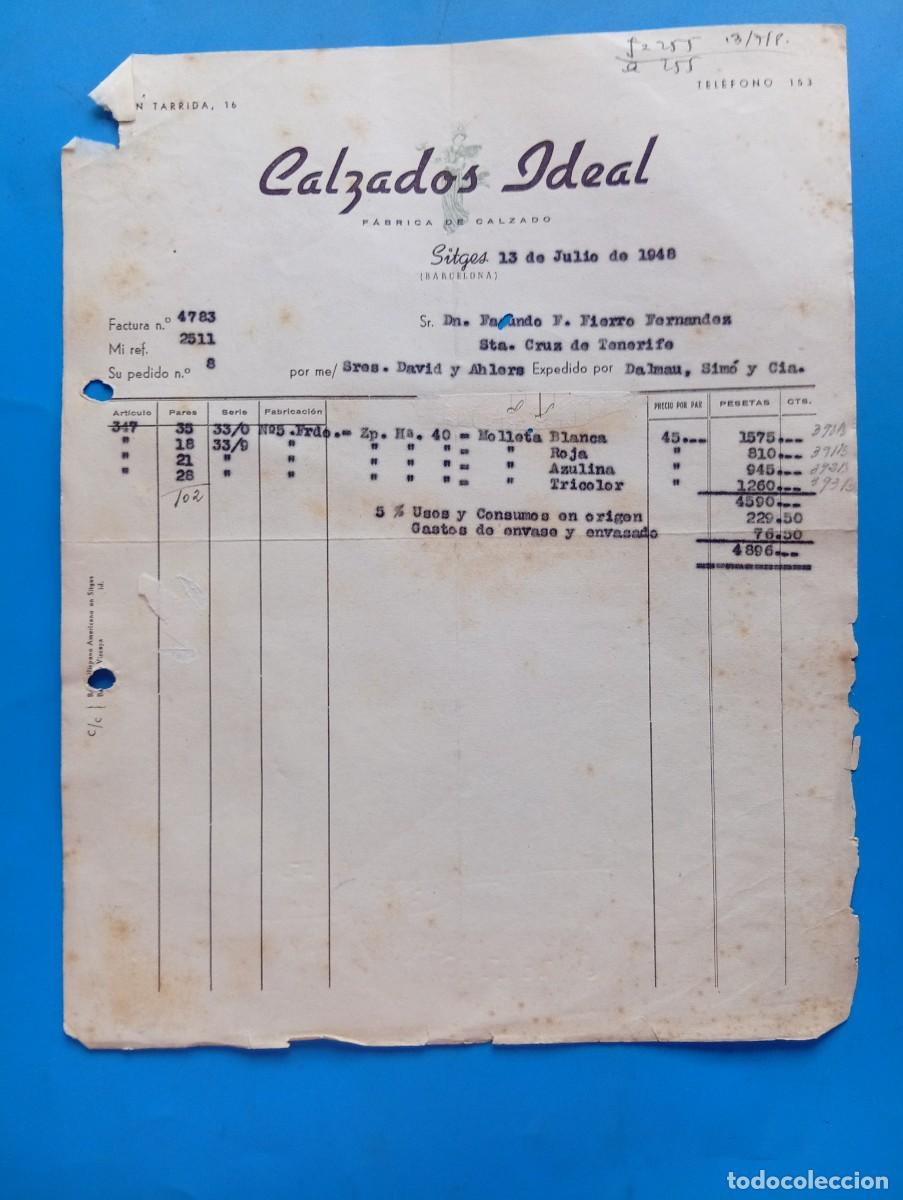 255 13/7/P.
255
N TARRIDA, 16
TELÉFONO 153
Calzados Ideal
FÁBRICA DE CALZADO
Sitges 13 de Julio de 1948
(BARCELONA)
Factura n.º 4783
Sr. Dn. Facundo F. Fierro Fernandez
Mi ref. 2511
Sta. Cruz de Tenerife
Su pedido n.º 8 por me/ Sres. David y Ahlers Expedido por Dalmau, Simó y Cia.
Artículo Pares Serie Fabricación PRECIO POR PAR PESETAS CTS.
347 35 33/0 Nº5.Frdo.- Zp. Ha. 40 = Molleta Blanca 45.-- 1575.--
" 18 33/9 " " " " = " Roja " 810.--
" 21 " " " " " = " Azulina " 945.--
" 28 " " " " " = " Tricolor " 1260.--
102 4590.--
5 % Usos y Consumos en origen 229.50
Gastos de envase y envasado 76.50
4896.--
c/c Hispano Americano en Sitges
Vizcaya id.
todocoleccion